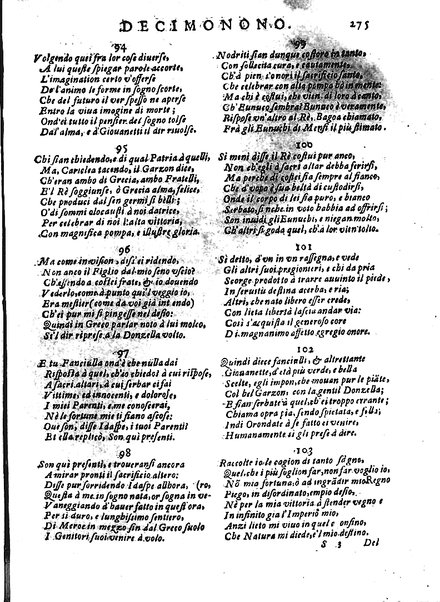 DECIMONONO. 275
94
Volgendo qui fra lor cose diverse,
A lui queste spiegar parole accorte,
L'imagination certo v'offerse
De l'animo le forme in sogno scorte,
Che del futuro il ver spesso ne aperse
Entro la viva imagine di morte;
Ond'ei tutto il pensier del sogno tolse
Dal'alma, e à Giovanetti il dir rivolse.
95
Chi sian chiedendo, e di qual Patria à quelli,
Ma, Cariclea tacendo, il Garzon dite,
Ch'eran ambo di Grecia, ambo Fratelli,
E'l Rè soggiunse, ò Grecia alma, felice,
Che produci dal sen germi sì belli;
O di sommi olocausti à noi datrice,
Per celebrar di noi l'alta vittoria,
Con magnifica pompa, e illustre gloria.
96
Ma come invision, disse ei ridendo,
Non anco il Figlio dal mio seno uscio?
Ch'essendo à costei frate, & io dovendo
Vederlo, come à punto qui'l veggo io,
Era mestier (come da voi già intendo)
Ch'ei pur mi si pingesse nel desio:
Quindi in Greco parlar noto à lui molco,
Si'l dir riprese à la Donzella volto.
97
E tu Fanciulla ond'è che nulla dai
Risposta à quel, ch'io chiedo? à cui rispose,
A sacri altari, à cui serbar ci fai
Vittime, ed innocenti, e dolorose,
I miei Parenti, e me conoscerai,
Nè le fortune mie ti siano ascose:
Oue son, disse Idaspe, i tuoi Parenti
Et ella replicò, Son qui presenti.
98
Son qui presenti, e troueransi ancora
A mirar pronti il sacrificio altero;
Disse pur sorridendo Idaspe allhora, (ro,
Questa à me in sogno nata, or sogna in ve-
Vaneggiando d'hauer fatto in quest'ora
Per sì duro, e lunghissimo sentiero,
Di Meroe in mezzo sin dal Greco suolo
I Genitori suoi venire à volo.
99
Nodriti sian dunque costoro in tanto,
Con sollecita cura, e cautamente,
Ch'à pien s'onori il sacrificio santo,
Che celebrar con alta pompa hò in mente:
Ma chi è costui, che vien di loro à canto,
Ch'Eunuco sembra? Eunuco è veramente,
Rispose vn'altro al Rè, Bagoa chiamato,
Frà gli Eunuchi di Mensi il più stimato.
100
Si meni disse il Rè costui pur anco,
Non ch'egli à sacri altar debba ferirsi,
Ma perche di costei sia sempre al fianco,
Che d'vopo è sua beltà di custodirsi,
Onde il corpo di lei sia puro, e bianco
Serbato, sì ne be in voto habbia ad offrirsi;
Son inuidi gli Eunuchi, e niegan molto,
Ch'altri si goda quel, ch'à lor vien tolto.
101
Sì detto, ad vn in vn rassegna, e vede
Gli altri suoi pregionieri, e chi da pria
Scorge prodotto à trarre auuinto il piede,
In seruitù destina acerba, e ria;
Altri, che nato libero esser crede,
Con lieta libertà lascia andar via:
Così s'acquista il generoso core
Di magnanimo affetto egregio onore.
102
Quindi diece fanciulli, & altrettante
Giouanette, d'età più verde, e bella
Scelte, egli impon, che mouan pur le piäte,
Col bel Garzon, con la gentil Donzella;
E sian serbate à quel, ch'ei troppo errante;
Chiama opra pia, sendo spietata, e fella;
Indi Orondate à se fatto ei venire,
Humanamente si gli prese à dire.
103
Raccolte io le cagion di tanto sdegno,
Quel, che i più soglion far, non far voglio io,
Nò mia fortuna à ad ingrãdir mio Regno
Pugo, in disordinato, empio desio,
Nè per la mia vittoria à stender vegno
In infinito già l'Imperio mio,
Anzi lieto mi viuo in quel confino,
Che Natura mi diede, e'l mio destino.
S 3 Del